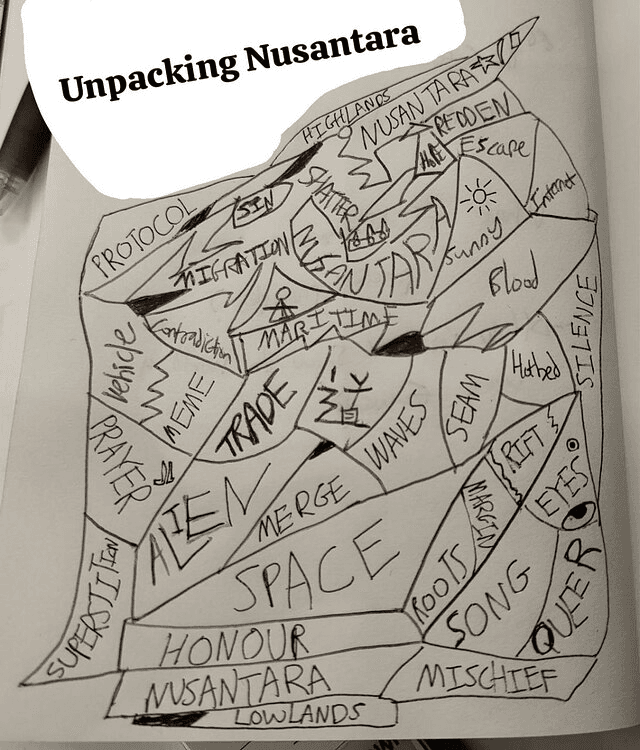 Unpacking Nusantara
HIGHLANDS
NUSANTARA
REDDEN
HOPE
Escape
Internet
PROTOCOL
SIN
SHATTER
MIGRATION
NUSANTARA
Sunny
Blood
SILENCE
Vehicle
Contradiction
MARITIME
MEME
TRADE
WAVES
SEAM
Hotbed
PRAYER
ALIEN
MERGE
RIFT
EYES
MARGIN
SPACE
ROOTS
SONG
QUEER
SUPERSTITION
HONOUR
NUSANTARA
MISCHIEF
LOWLANDS